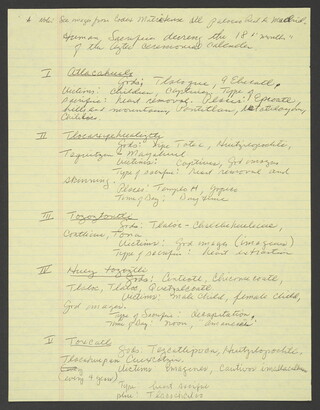 Human Sacrifice during the 18 "months"
of the Aztec Ceremonial Calendar
I Atlacahualo
Gods: Tlaloque, 4 Ehecatl,
Victims: Children, Captives; Type of
Sacrifice: heart removal. Places:
hills and mountains, Pantitlan,
II Tlacaxipehualiztli
Gods: Xipe Totec, Huitzilopochtli,
Victims: Captives, God images
Type of Sacrifice: heart removal and
skinning Places: Temple
Time of Day: Day time
III Tozoztontli
Gods: Tlaloc - Chalchiuhtlicue,
Coatlicue, Tona
Victims: God image (imagenes)
Type of sacrifice: heart extraction
IV Huey tozoztli
Gods: Centeotl, Chicomecoatl,
Tlaloc, Quetzalcoatl
Victims: male child, female child,
God images
Type of Sacrifice: decapitation,
Time of Day: noon,
V Toxcatl
Gods: Tezcatlipoca, Huitzilopochtli,
Tlacahuepan Cuexcotzin
Victims: Imagenes, Cautivo
(every 4 years)
Type: heart sacrifice
place: Tlacochcalco